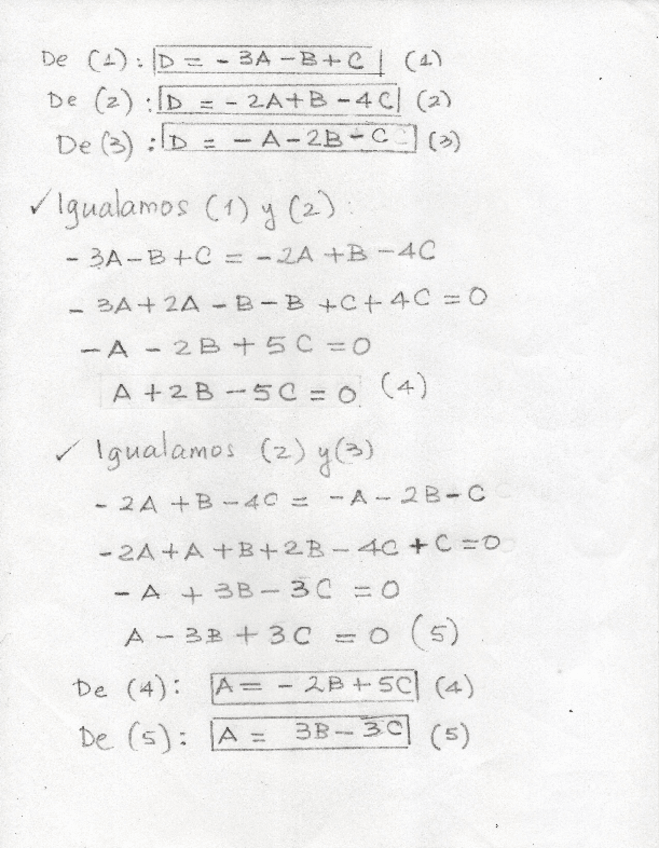 De (1): D = - 3A - B + C (1)
De (2): D = - 2A + B - 4C (2)
De (3): D = - A - 2B - C (3)
✓ Igualamos (1) y (2):
- 3A - B + C = - 2A + B - 4C
- 3A + 2A - B - B + C + 4C = 0
- A - 2B + 5C = 0
A + 2B - 5C = 0 (4)
✓ Igualamos (2) y (3)
- 2A + B - 4C = - A - 2B - C
- 2A + A + B + 2B - 4C + C = 0
- A + 3B - 3C = 0
A - 3B + 3C = 0 (5)
De (4): A = - 2B + 5C (4)
De (5): A = 3B - 3C (5)